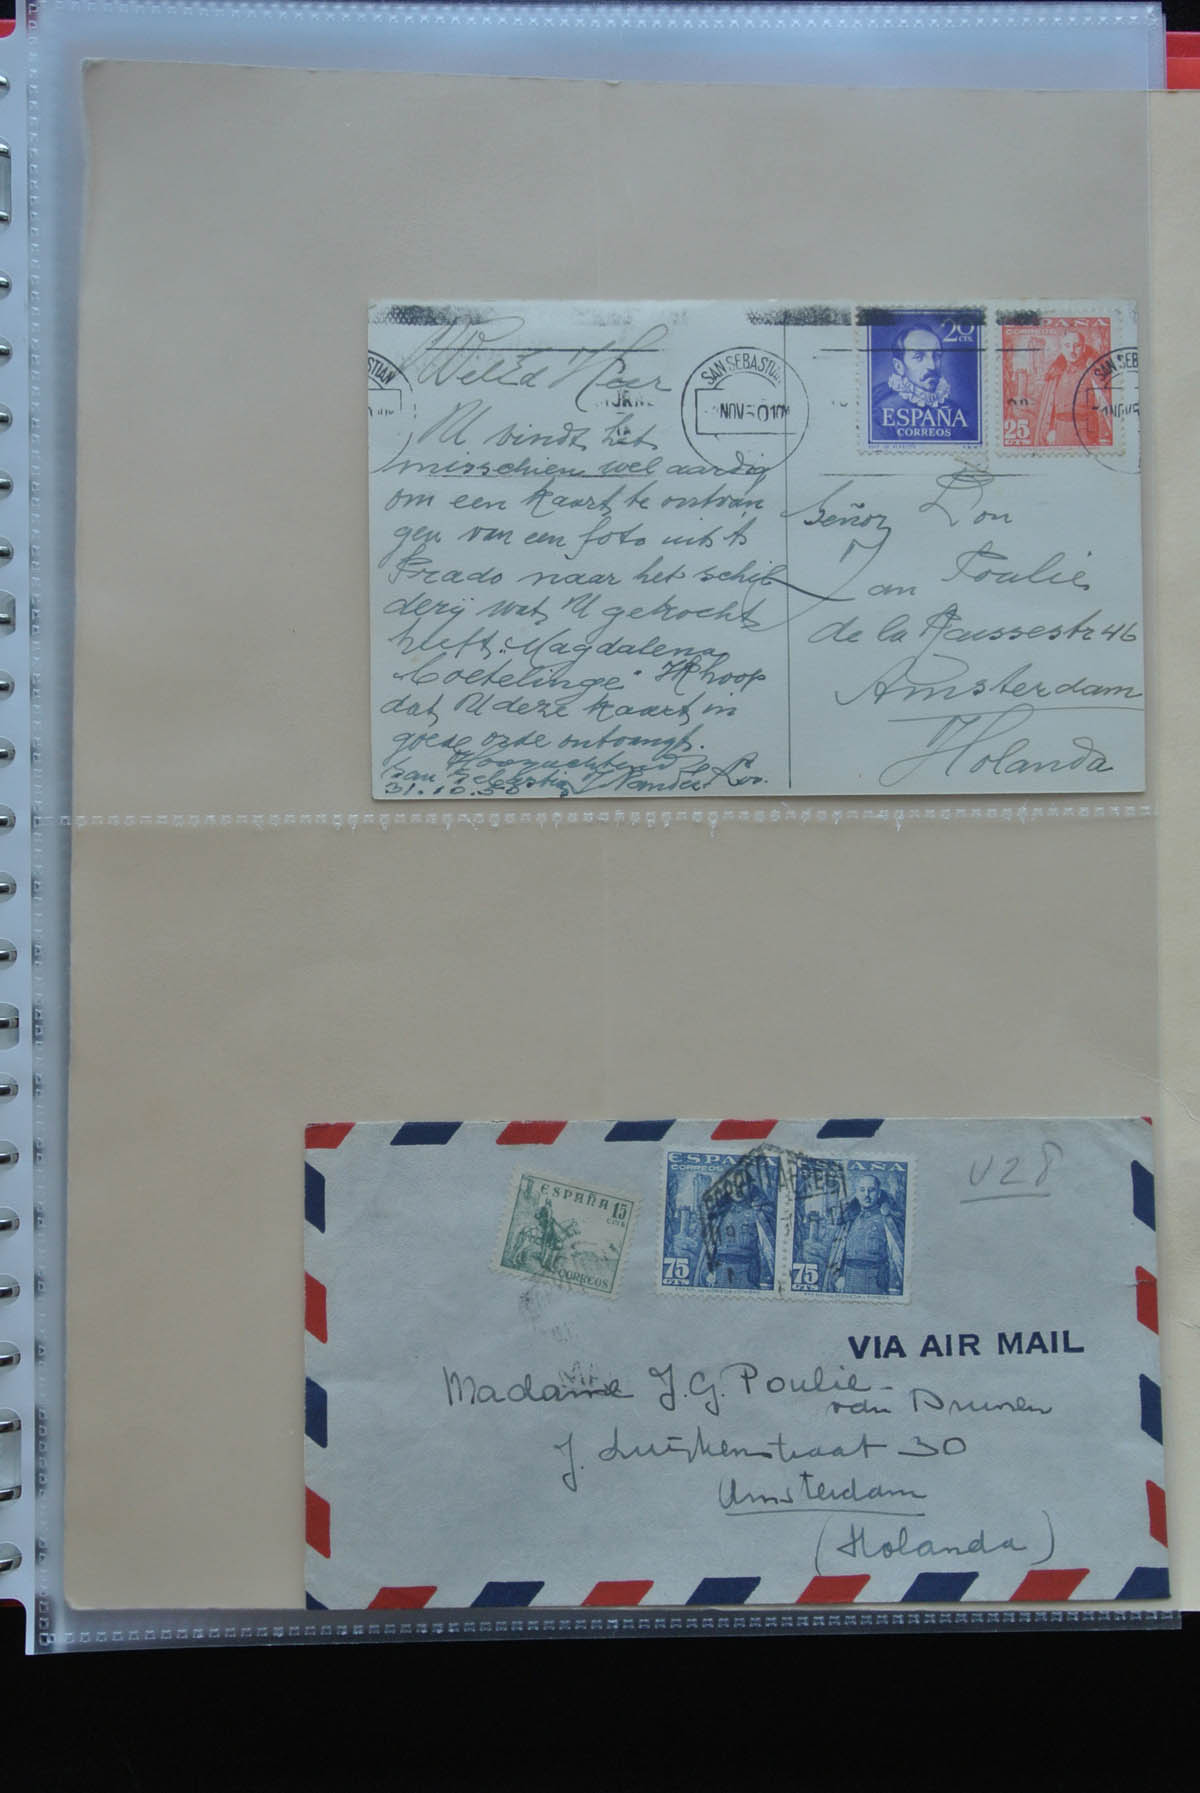 20
CTS.
ESPAÑA
CORREOS
ESPAÑA
CORREOS
25
CTS
SAN SEBASTIAN
NOV 50 10M
STIAN
SAN SEB
NOV 5
Weled Heer
U vindt het
misschien wel aardig
om een kaart te ontvan
gen van een foto uit 't
Prado naar het schil
derij wat U gekocht
heeft. "Magdalena
Ik hoop
dat U deze kaart in
goede orde ontvangt.
Hoogachtend
San Sebastian
31.10.50
Señor Don
Jan Poulie
de la
46
Amsterdam
Holanda
ESPAÑA
15
CTS
CORREOS
ESPAÑA
CORREOS
75
CTS
ESPAÑA
75
CTS
CORREO AEREO
V28
VIA AIR MAIL
Madame J. G. Poulie-
van Drunen
J. Luijkenstraat 30
Amsterdam
(Holanda)